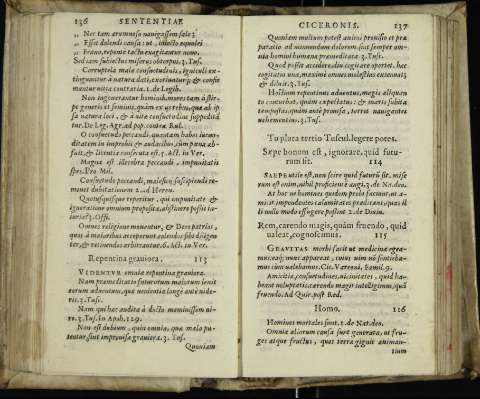 136 SENTENTIAE
„ Nec tam ærumnoso nauigassem salo:
„ Esset dolendi causa: ut, iniecto equulei
„ Freno, repente tactu exagitantur nouo.
Sed iam subactus miseriis obtorpui. 3. Tusc.
Corruptela malæ consuetudinis, igniculi ex-
tinguuntur à natura dati, exoriuntur & confir-
mantur uitia contraria. 1. de Legib.
Non ingenerantur hominib. mores tam à stir-
pe generis et seminis, quàm ex iis rebus, quæ ab ip
sa natura loci, & à uitæ consuetudine suppedita
tur. De Leg. Agr. ad pop. contra Rul.
O consuetudo peccandi, quantam habes iucun-
ditatem in improbis & audacibus, cùm pœna ab-
fuit, & licentia consecuta est. 5. Act. in Ver.
Magna est illecebra peccandi, impunitatis
spes. Pro Mil.
Consuetudo peccandi, maleficij suscipiendi re-
mouet dubitationem 2. ad Heren.
Quotusquisque reperitur, qui impunitate &
ignoratione omnium proposita, abstinere possit in-
iuria? 3. Offi.
Omnes religione mouentur, & Deos patrios,
quos à maioribus acceperunt, colendos sibi diligen
ter, & retinendos arbitrantur. 6. Act. in Ver.
Repentina grauiora. 113
VIDENTVR omnia repentina grauiora.
Nam præmeditatio futurorum malorum lenit
eorum aduentum, quæ uenientia longè antè uide-
ris. 3. Tusc.
Nam qui hæc audita à docto meminissem ui-
ro. 3. Tus. In Apoph. 129.
Non est dubium, quin omnia, quæ mala pu-
tentur, sint improuisa grauiora. 3. Tus.
Quoniam
CICERONIS. 137
Quoniam multum potest animi prouisio et præ
paratio ad minuendum dolorem: sint semper om-
nia homini humana præmeditata. 3. Tusc.
Quod possit accidere, diu cogitare oportet. hæc
cogitatio una, maximè omnes molestias extenuat,
& diluit. 3. Tus.
Hostium repentinus aduentus, magis aliquan
to conturbat, quàm expectatus: & maris subita
tempestas, quàm antè prouisa, terret nauigantes
uehementius. 3. Tus.
Tu plura tertio Tuscul. legere potes.
Sæpe bonum est, ignorare, quid futu-
rum sit. 114
SAEPE utile est, non scire quid futurū sit. mise
rum est enim, nihil proficientē angi. 3. de Na. deo.
At hoc ne homines quidem probi faciunt, ut a-
micis impendentes calamitates prædicant, quas il
li nullo modo effugere possint. 2. de Diuin.
Rem, carendo magis, quàm fruendo, quid
ualeat, cognoscimus. 115
GRAVITAS morbi facit ut medicinæ egea-
mus: eaq́; nunc appareat, cuius uim nō sentieba-
mus cùm ualebamus. Cic. Vareno, Famil. 9.
Amicitia, consuetudines, uicinitates, quid ha-
beant uoluptatis, carendo magis intelligimus, quàm
fruendo. Ad Quir. post Red.
Homo. 116
Homines mortales sunt. 1. de Nat. deo.
Omnia aliorum causa sunt generata, ut fru-
ges atque fructus, quos terra gignit animan-
tium